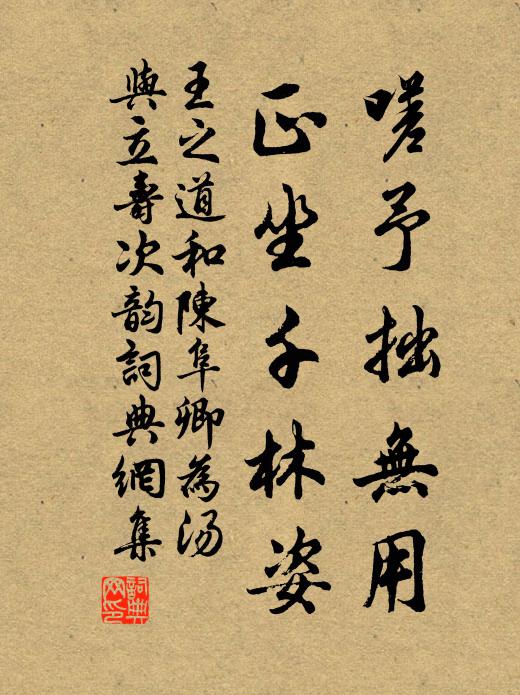 嗟予拙無用
正坐千林姿
王之道和陳阜卿為湯
與立壽次韵詞典網集
詞典网印